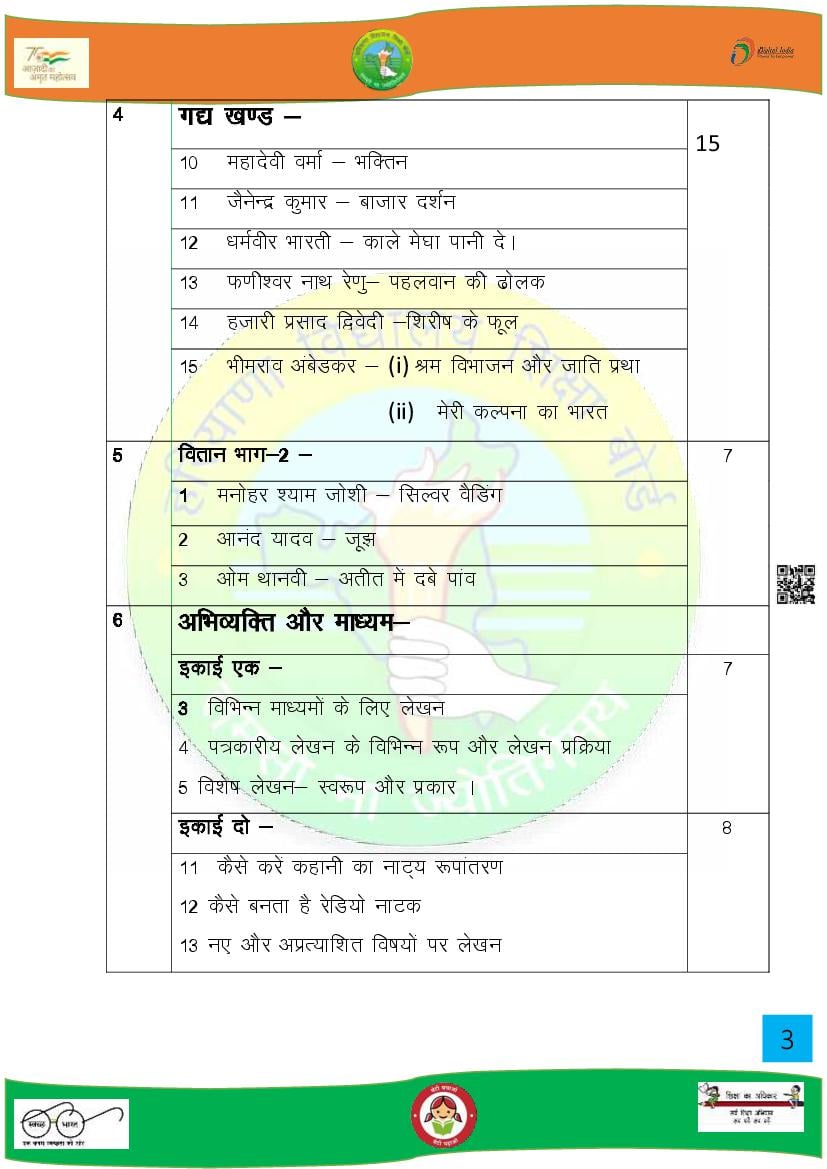 आज़ादी का
अमृत महोत्सव
Digital India
4 गद्य खण्ड –
15
10 महादेवी वर्मा – भक्तिन
11 जैनेन्द्र कुमार – बाजार दर्शन
12 धर्मवीर भारती – काले मेघा पानी दे।
13 फणीश्वर नाथ रेणु– पहलवान की ढोलक
14 हजारी प्रसाद द्विवेदी –शिरीष के फूल
15 भीमराव अंबेडकर – (i) श्रम विभाजन और जाति प्रथा
(ii) मेरी कल्पना का भारत
5 वितान भाग–2 – 7
1 मनोहर श्याम जोशी – सिल्वर वैडिंग
2 आनंद यादव – जूझ
3 ओम थानवी – अतीत में दबे पांव
6 अभिव्यक्ति और माध्यम–
इकाई एक – 7
3 विभिन्न माध्यमों के लिए लेखन
4 पत्रकारीय लेखन के विभिन्न रूप और लेखन प्रक्रिया
5 विशेष लेखन– स्वरूप और प्रकार ।
इकाई दो – 8
11 कैसे करें कहानी का नाट्य रूपांतरण
12 कैसे बनता है रेडियो नाटक
13 नए और अप्रत्याशित विषयों पर लेखन
हरियाणा विद्यालय शिक्षा बोर्ड
तमसो मा ज्योतिर्गमय
3
स्वच्छ भारत
एक कदम स्वच्छता की ओर
बेटी बचाओ
बेटी पढ़ाओ
शिक्षा का अधिकार
सर्व शिक्षा अभियान
सब पढ़ें सब बढ़ें